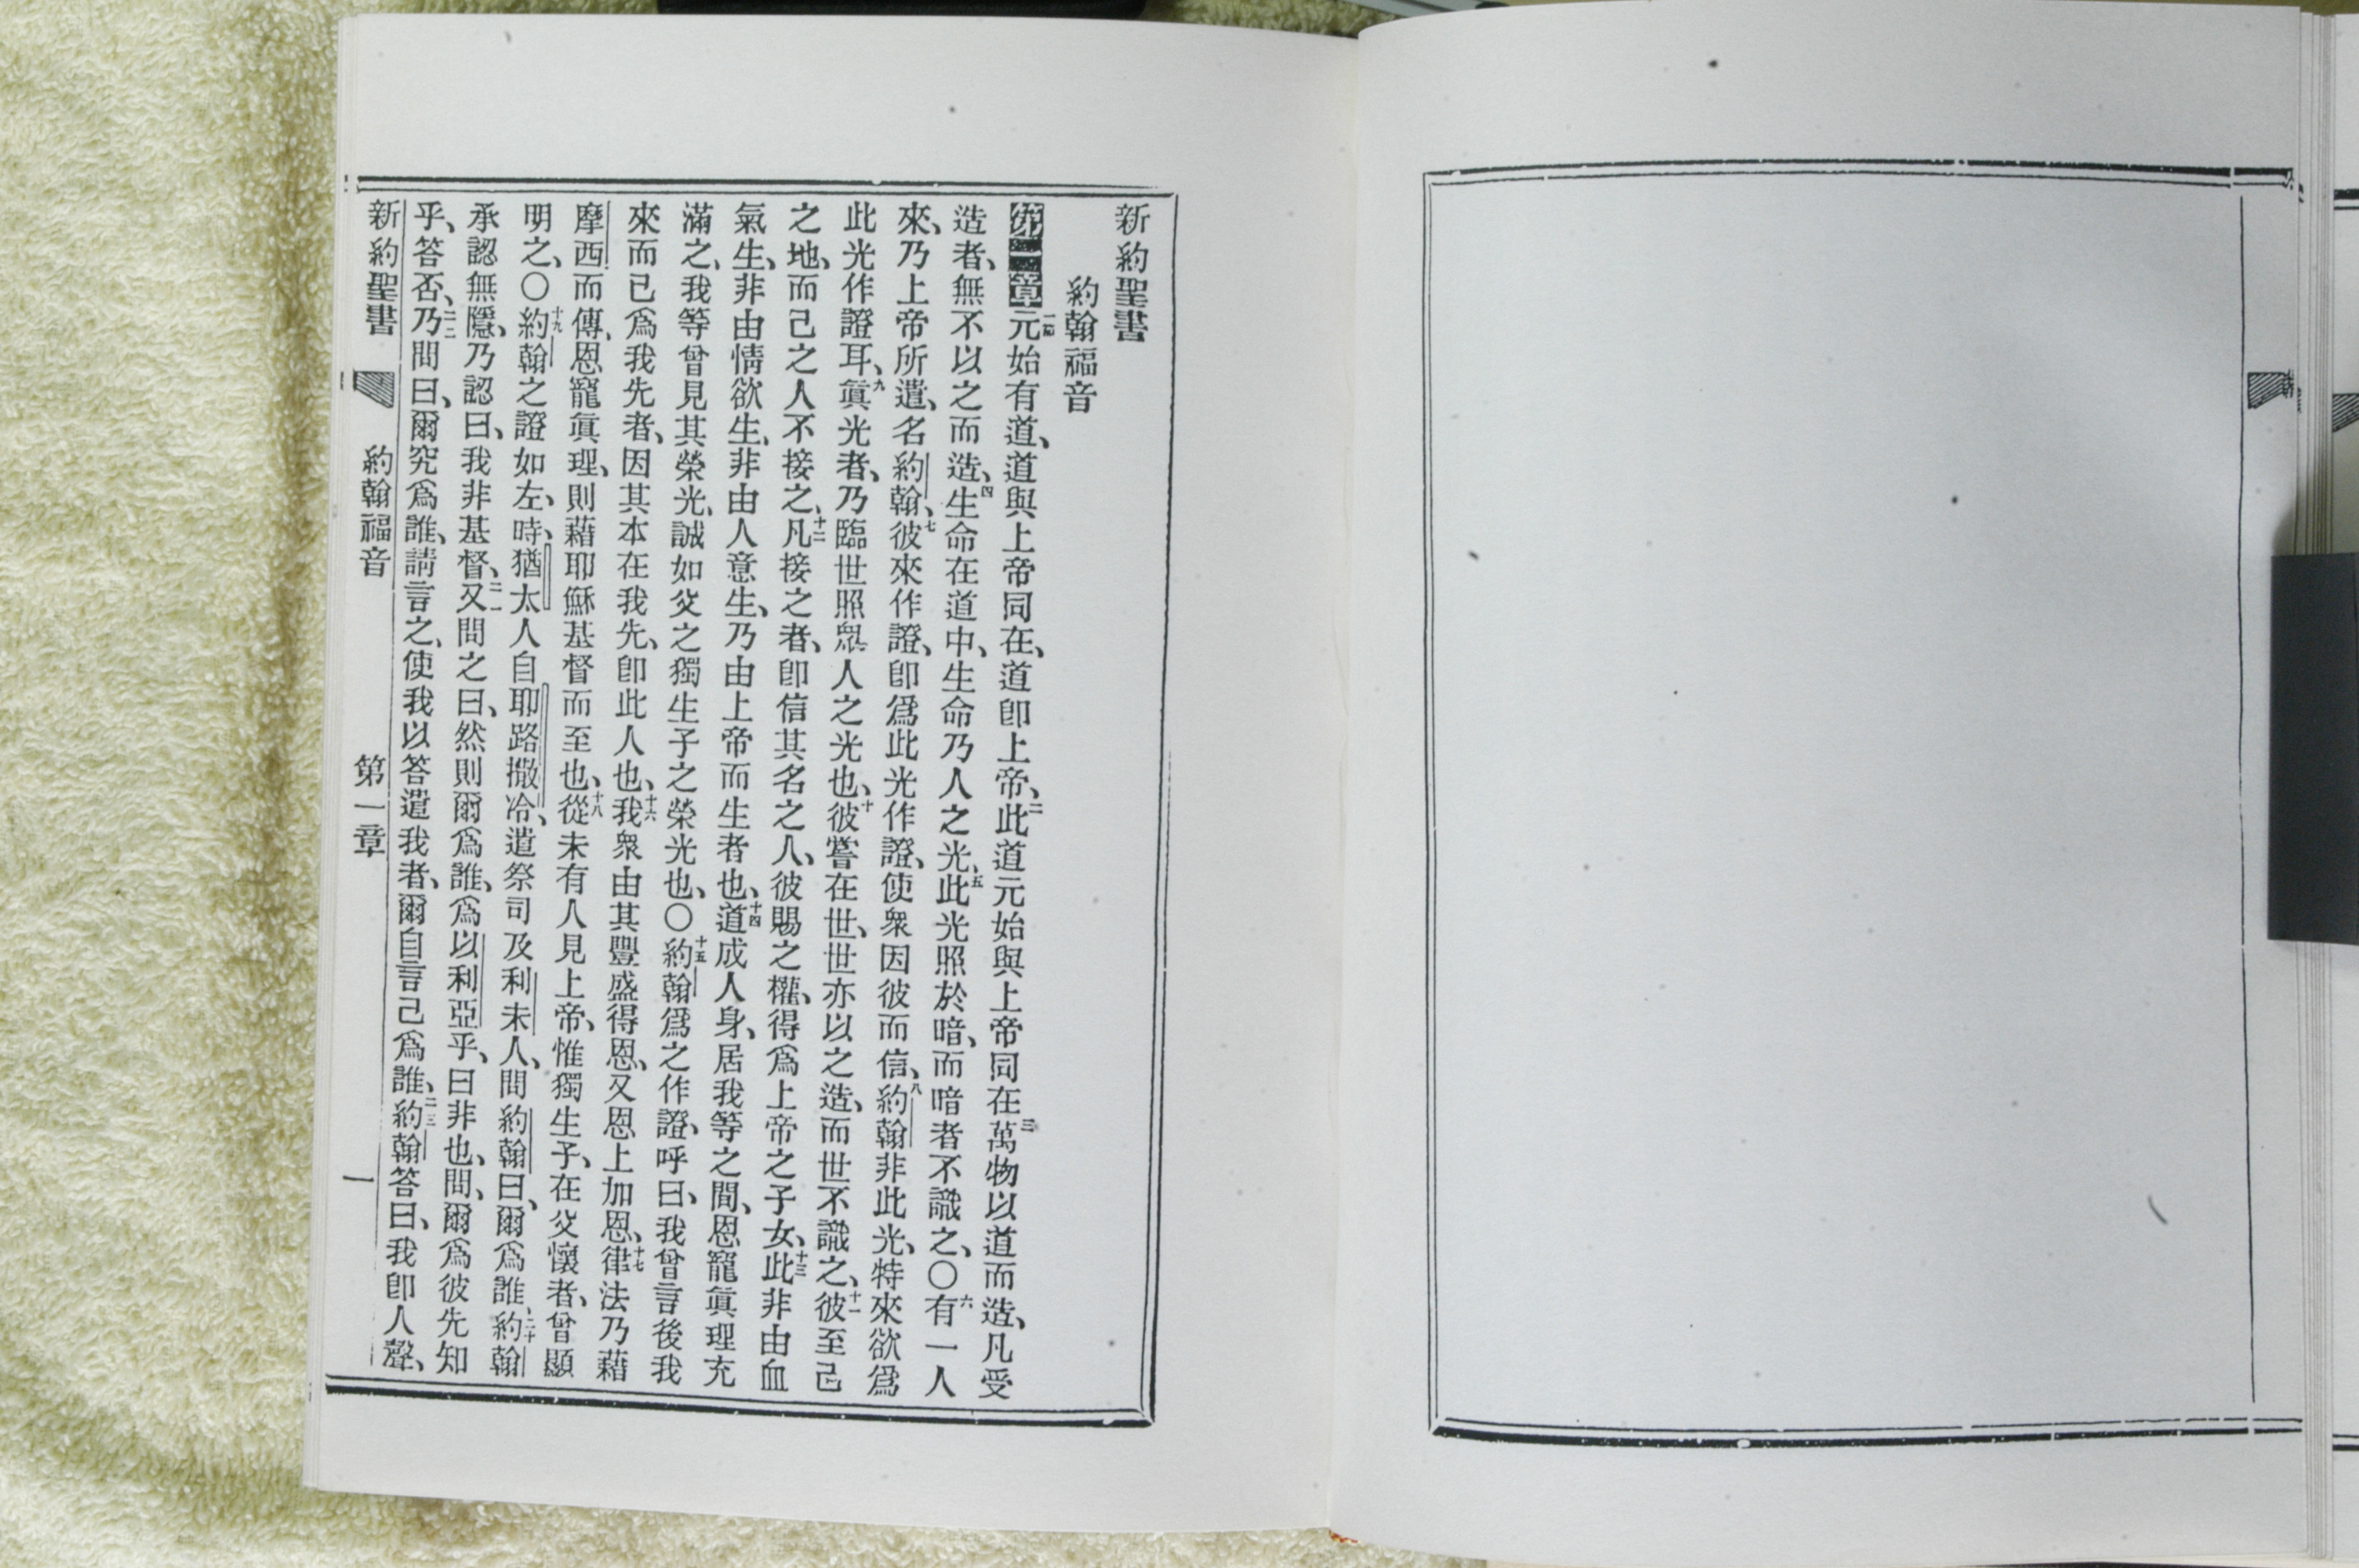 新約聖書
約翰福音
第一章元始有道、道與上帝同在、道卽上帝、二此道元始與上帝同在三萬物以道而造、凡受
造者、無不以之而造、四生命在道中、生命乃人之光、五此光照於暗、而暗者不識之、〇六有一人
來、乃上帝所遣、名約翰、七彼來作證、卽爲此光作證、使衆因彼而信、八約翰非此光、特來欲爲
此光作證耳、九眞光者、乃臨世照眾人之光也、十彼嘗在世、世亦以之造、而世不識之、十一彼至己
之地、而己之人不接之、十二凡接之者、卽信其名之人、彼賜之權、得爲上帝之子女、十三此非由血
氣生、非由情欲生、非由人意生、乃由上帝而生者也、十四道成人身、居我等之間、恩寵眞理充
滿之、我等曾見其榮光、誠如父之獨生子之榮光也、〇十五約翰爲之作證、呼曰、我曾言後我
來而已爲我先者、因其本在我先、卽此人也、十六我衆由其豐盛得恩、又恩上加恩、十七律法乃藉
摩西而傳、恩寵眞理、則藉耶穌基督而至也、十八從未有人見上帝、惟獨生子、在父懷者、曾顯
明之、〇十九約翰之證如左、時、猶太人自耶路撒冷、遣祭司及利未人、問約翰曰、爾爲誰、二十約翰
承認無隱、乃認曰、我非基督、二一又問之曰、然則爾爲誰、爲以利亞乎、曰非也、問、爾爲彼先知
乎、答否、二二乃問曰、爾究爲誰、請言之、使我以答遣我者、爾自言己爲誰、二三約翰答曰、我卽人聲、
新約聖書 約翰福音 第一章 一